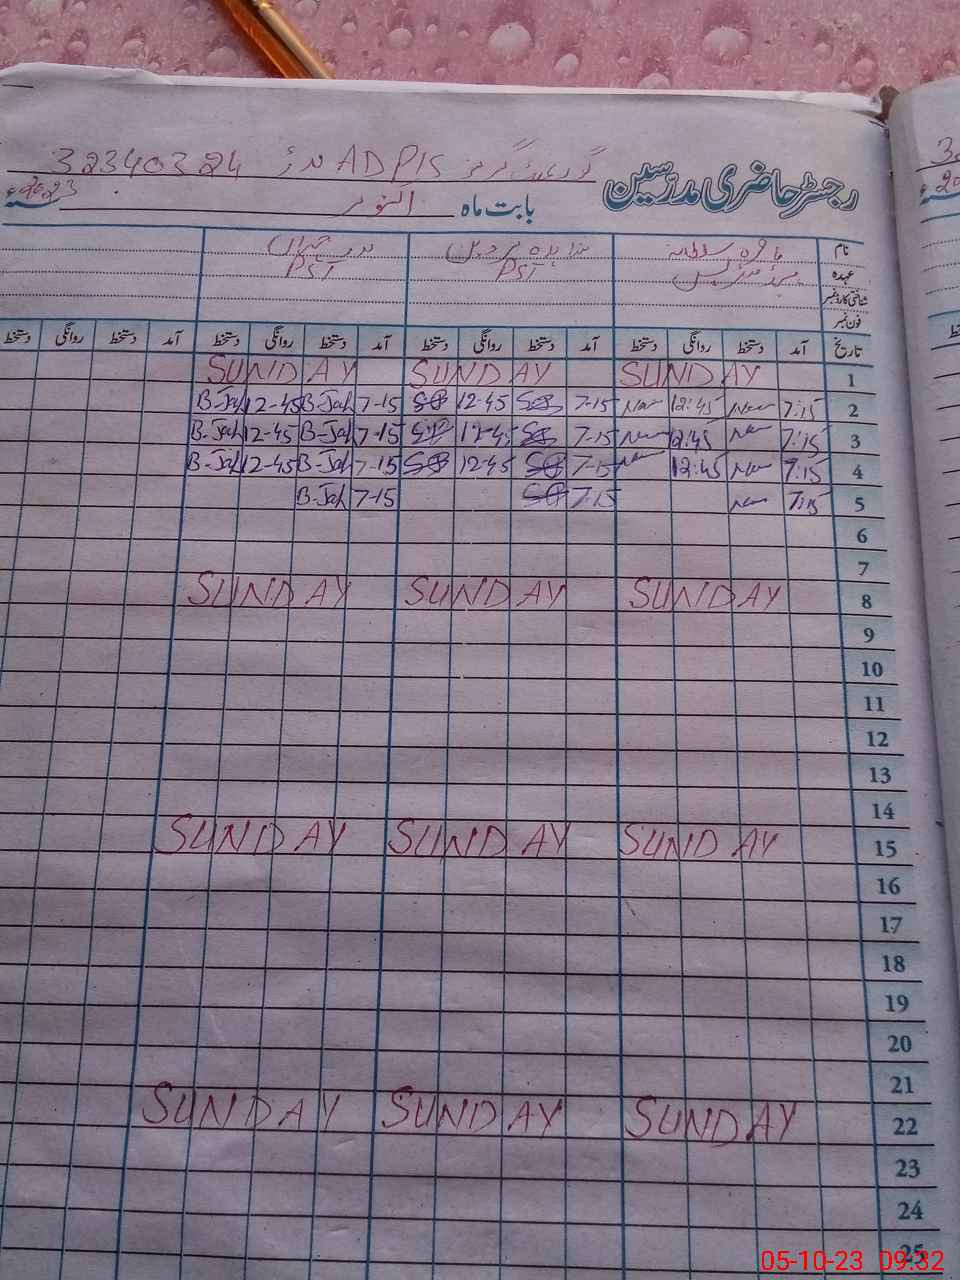 رجسٹر حاضری مدرسین گورنمنٹ گرلز ADPIS مدرز 32340324
بابت ماہ اکتوبر 2023ء
نام
عہدہ PST PST
شناختی کارڈ نمبر
فون نمبر
تاریخ آمد دستخط روانگی دستخط آمد دستخط روانگی دستخط آمد دستخط روانگی دستخط آمد دستخط روانگی دستخط
1 SUNDAY SUNDAY SUNDAY
2 7:15 12:45 7-15 12-45 7-15 B-Jah 12-45 B-Jah
3 7:15 12:45 7-15 12-45 7-15 B-Jah 12-45 B-Jah
4 7:15 12:45 7-15 12-45 7-15 B-Jah 12-45 B-Jah
5 7:15 7-15 7-15 B-Jah
6
7
8 SUNDAY SUNDAY SUNDAY
9
10
11
12
13
14
15 SUNDAY SUNDAY SUNDAY
16
17
18
19
20
21
22 SUNDAY SUNDAY SUNDAY
23
24
25
05-10-23 09:32